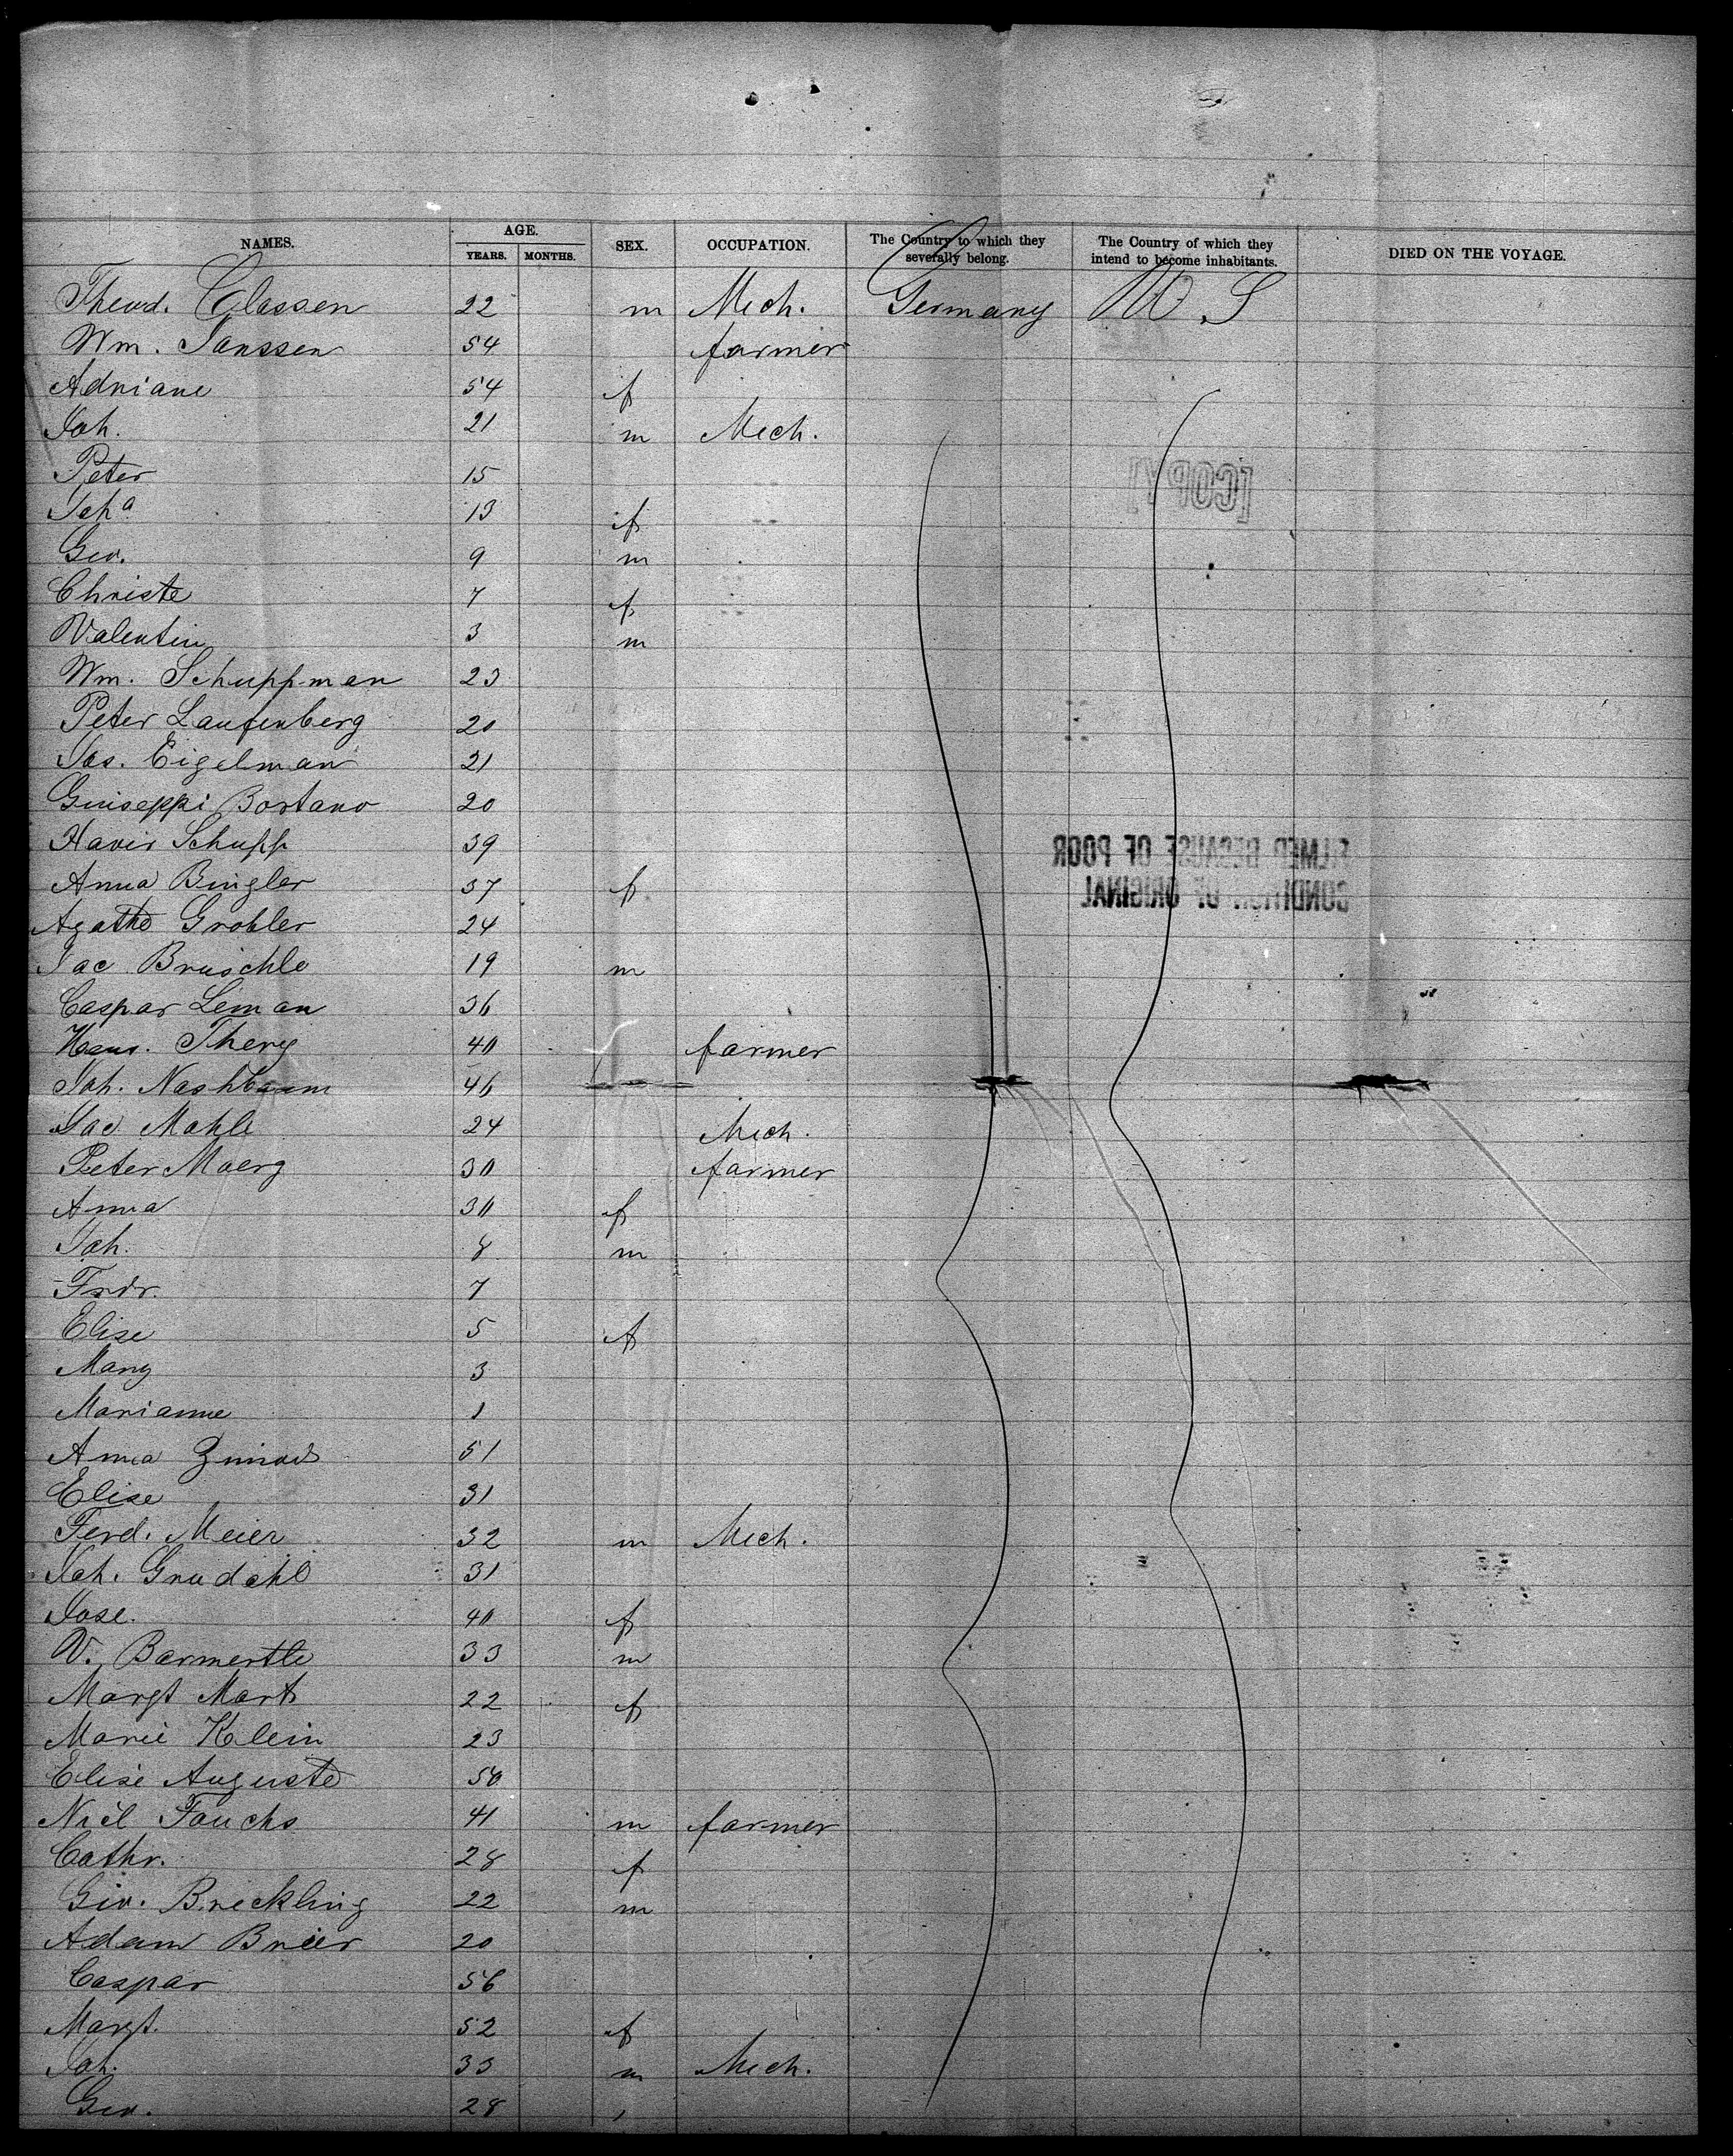 NAMES. AGE. SEX. OCCUPATION. The Country to which they severally belong. The Country of which they intend to become inhabitants. DIED ON THE VOYAGE.
YEARS. MONTHS.
Theod. Classen 22 m Mech. Germany U S
Wm. Janssen 54 farmer
Adriane 54 f
Joh. 21 m Mech.
Peter 15
Joh a 13 f
Geo. 9 m
Christe 7 f
Valentin 3 m
Wm. Schuppman 23
Peter Laufenberg 20
Jos. Eigelman 21
Guiseppi Bostano 20
Xavir Schupp 39
Anna Bingler 37 f
Agathe Grobler 24
Jac Bruschle 19 m
Caspar Leman 36
Thery 40 farmer
Joh. Nashbaum 46
Jac Mahle 24 Mech.
Peter Moerg 30 farmer
Anna 30 f
Joh. 8 m
Frdr. 7
Elise 5 f
Mary 3
Marianne 1
Anna 51
Elise 31
Ferd. Meier 32 m Mech.
Joh. Grudahl 31
Jose. 40 f
V. Barmertle 33 m
Margt Mart 22 f
Marie Klein 23
Elise Auguste 50
Fouchs 41 m farmer
Cathr. 28 f
Geo. Breckling 22 m
Adam Brier 20
Caspar 56
Margt. 52 f
Joh. 33 m Mech.
Geo. 28
[COPY]
FILMED BECAUSE OF POOR
CONDITION OF ORIGINAL